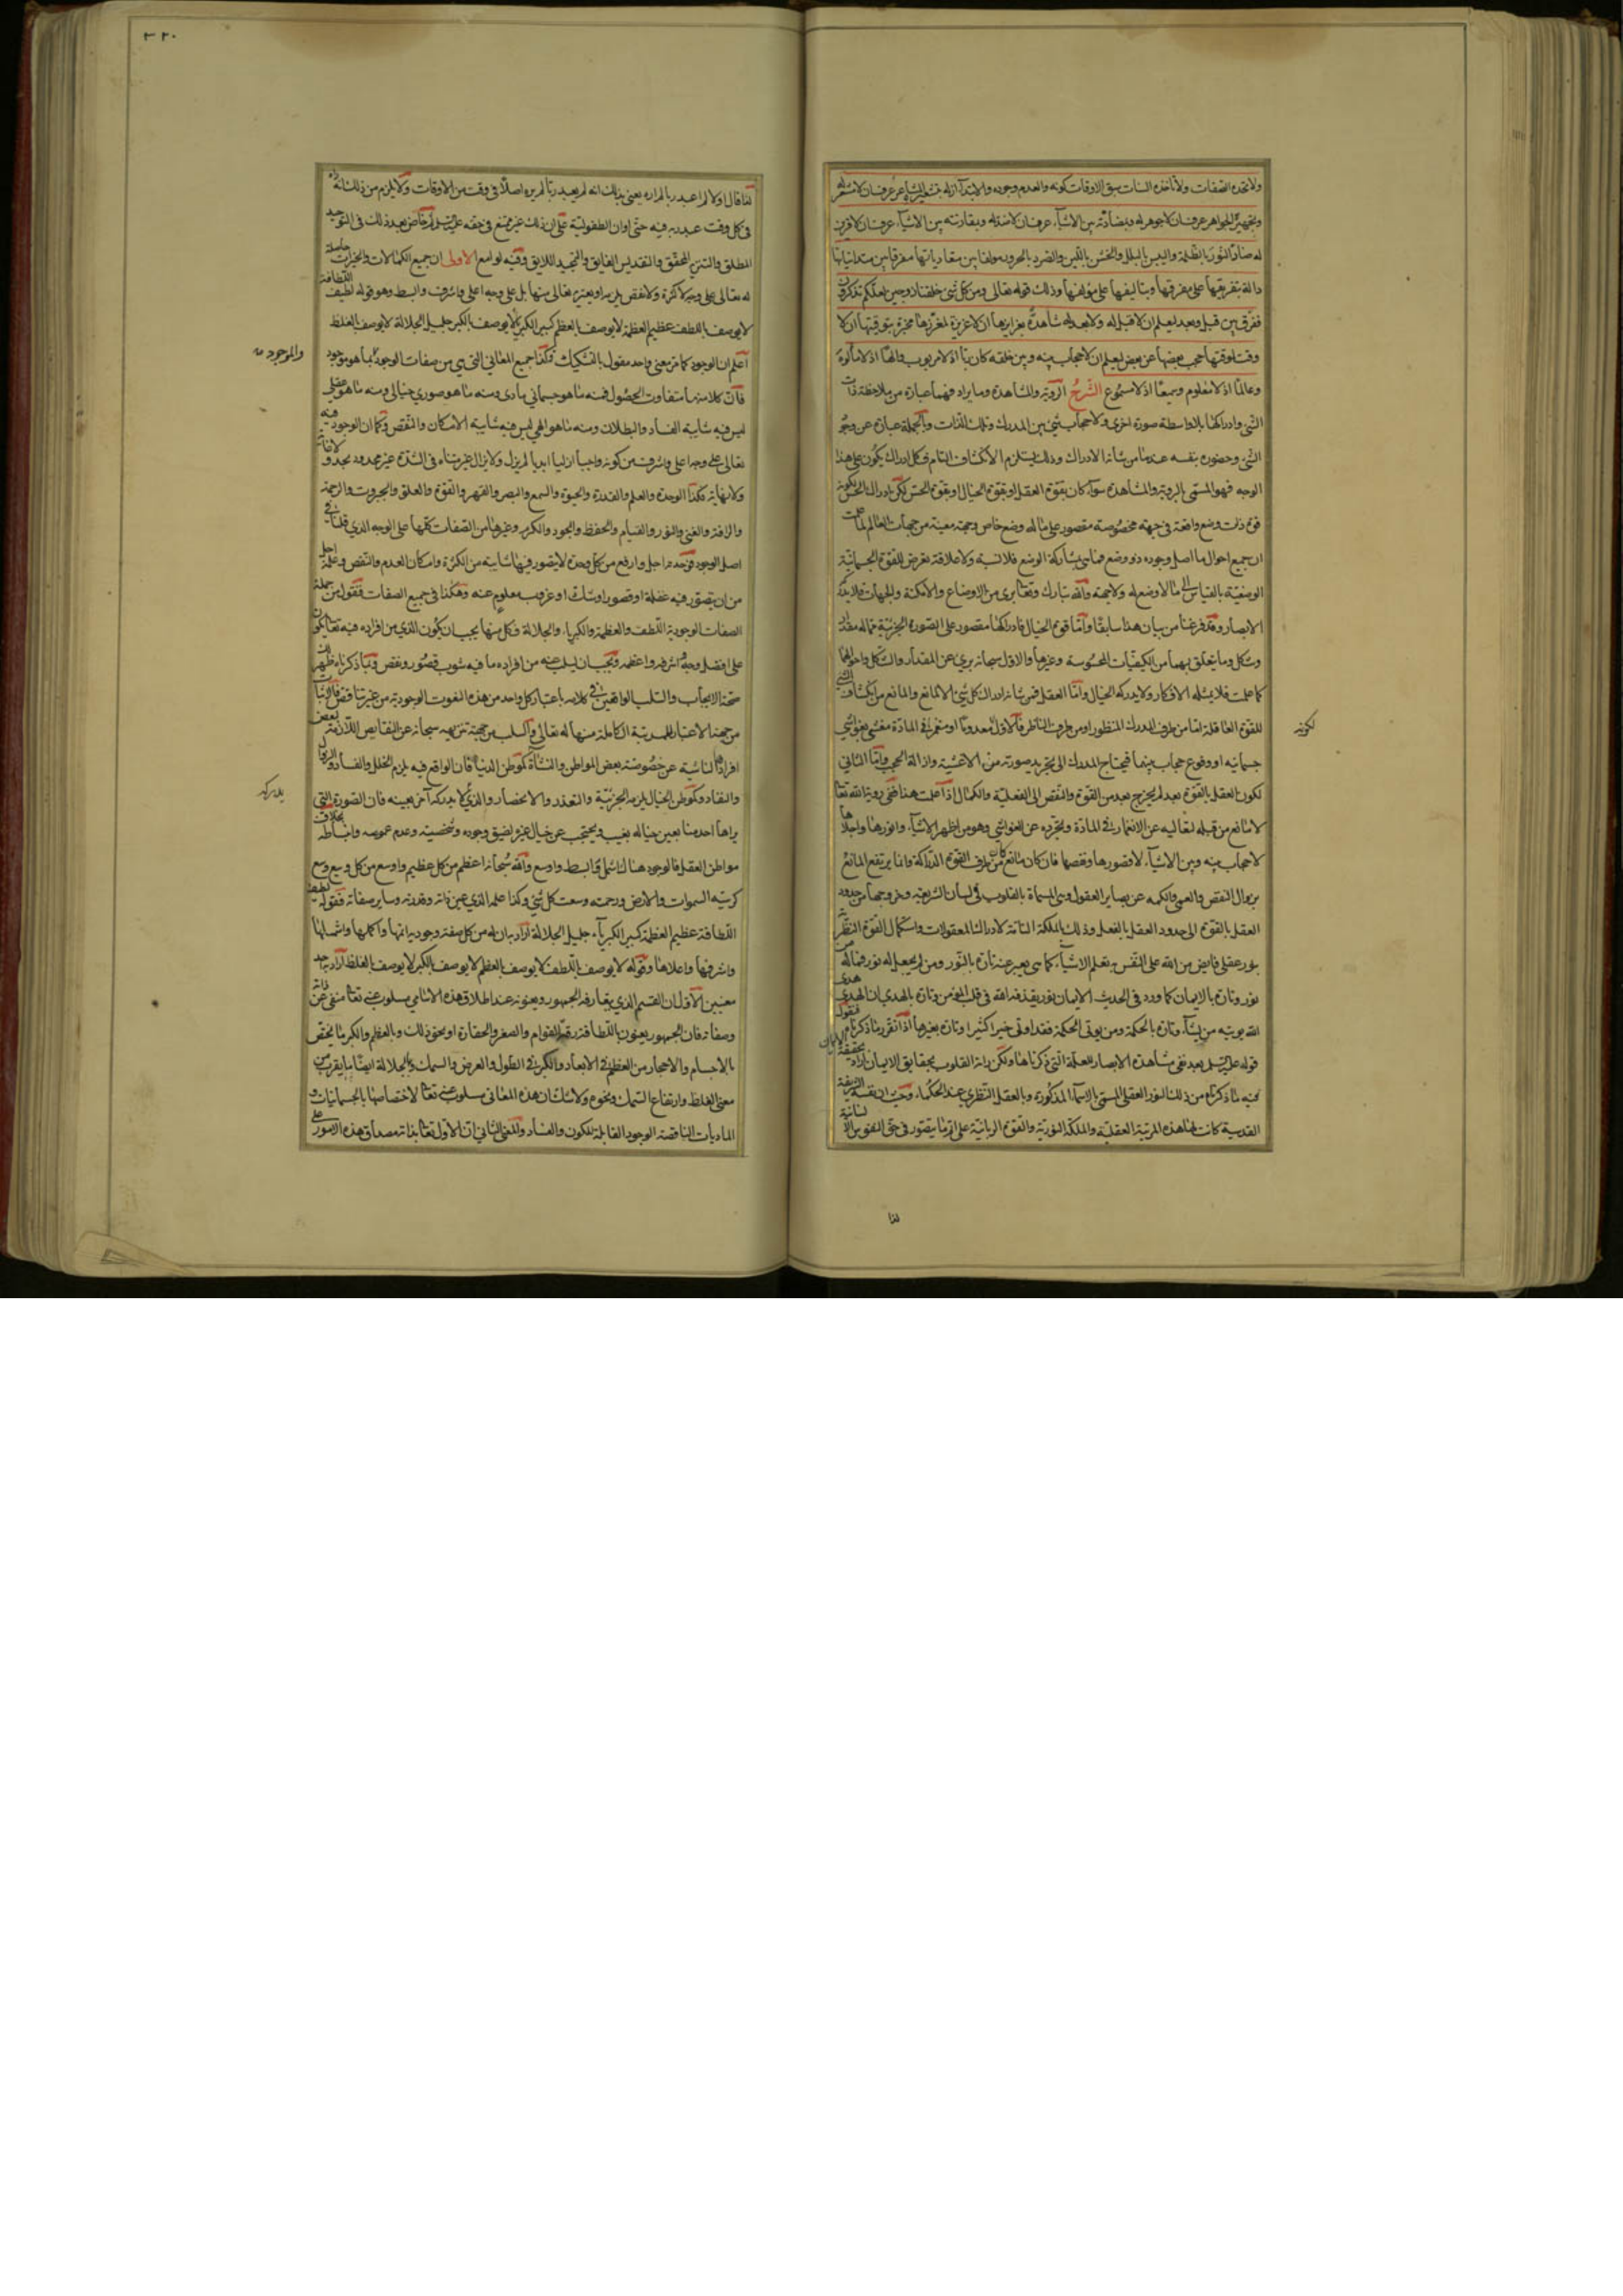 ولا تحده الصفات ولا تأخذه السنات سبق الاوقات كونه والعدم وجوده والابتداء ازله بتشعيره المشاعر عرف ان لا مشعر له
وبتجهيره الجواهر عرف ان لا جوهر له وبمضادته بين الاشياء عرف ان لا ضد له وبمقارنته بين الاشياء عرف ان لا قرين
له ضاد النور بالظلمة واليبس بالبلل والخشن باللين والصرد بالحرور مؤلفا بين متعادياتها مفرقا بين متدانياتها
دالة بتفريقها على مفرقها وبتاليفها على مؤلفها وذلك قوله تعالى ومن كل شئ خلقنا زوجين لعلكم تذكرون
ففرق بين قبل وبعد ليعلم ان لا قبل له ولا بعد له شاهدة بغرايزها ان لا غريزة لمغرزها مخبرة بتوقيتها ان لا
وقت لموقتها حجب بعضها عن بعض ليعلم ان لا حجاب بينه وبين خلقه كان ربا اذ لا مربوب والها اذ لا مألوه
وعالما اذ لا معلوم وسميعا اذ لا مسموع الشرح الرؤية والمشاهدة وما يراد فهما عبارة من ملاحظة ذات
الشئ وادراكها بلا واسطة صورة اخرى ولا حجاب شئ بين المدرك وتلك الذات وبالجملة عبارة عن وجود
الشئ وحضوره بنفسه عند ما من شأنه الادراك وذلك يستلزم الانكشاف التام فكل ادراك يكون على هذا
الوجه فهو المسمى بالرؤية والمشاهدة سواء كان بقوة العقل او بقوة الخيال او بقوة الحس لكن ادراك الحس لكونه
قوة ذات وضع واقعة في جهة مخصوصة مقصور على ما له وضع خاص وجهة معينة من جهات العالم لما علمت
ان جميع احوال ما اصل وجوده ذو وضع فانما هي بمشاركة الوضع فلا نسبة ولا علاقة تعرض للقوة الجسمانية
الوضعية بالقياس الى ما لا وضع له ولا جهة والله تبارك وتعالى برى من الاوضاع والامكنة والجهات فلا يدركه
الابصار وقد فرغنا من بيان هذا سابقا واما قوة الخيال فادراكها مقصور على الصورة الجزئية مما له مقدار
وشكل وما يتعلق بهما من الكيفيات المحسوسة وغيرها والاول سبحانه برئ عن المقدار والشكل واحوالهما
كما علمت فلا يمثله الافكار ولا يدركه الخيال واما العقل فمن شأنه ادراك كل شئ الا لمانع والمانع من انكشاف الشئ
للقوة العاقلة اما من طرف المدرك المنظور او من طرف الناظر فالاول لكونه معدوما او منغمرا في المادة مغشى بغواشي
جسمانية او وقوع حجاب بينهما فيحتاج المدرك الى تجريد صورته من الاغشية وازالة الحجب واما الثاني
لكون العقل بالقوة بعد لم يخرج بعد من القوة والنقص الى الفعلية والكمال اذا علمت هذا ففي رؤية الله تعالى
لا مانع من قبله لتعاليه عن الانغمار في المادة وتجرده عن الغواشي وهو من اظهر الاشياء وانورها واجلاها
لا حجاب بينه وبين الاشياء الا قصورها ونقصها فان كان مانع كان من طرف القوة الدراكة وانما يرتفع المانع
بزوال النقص والعمى والكمه عن بصاير العقول وهي المسماة بالقلوب في لسان الشريعة وخروجها من حدود
العقل بالقوة الى حدود العقل بالفعل وذلك بالملكة التامة لادراك المعقولات واستكمال القوة النظرية
بنور عقلي فايض من الله على النفس به تعلم الاشياء كما هي يعبر عنه تارة بالنور ومن لم يجعل الله له نورا فما له من
نور وتارة بالايمان كما ورد في الحديث الايمان نور يقذفه الله في قلب المؤمن وتارة بالهدى ان الهدى هدى
الله يؤتيه من يشاء وتارة بالحكمة ومن يؤتى الحكمة فقد اوتى خيرا كثيرا وتارة بغيرها اذا تقرر ما ذكرناه فنقول
قوله عليه السلم بعد نفى مشاهدة الابصار للعلة التي ذكرناها ولكن راته القلوب بحقايق الايمان اراد بحقيقة الايمان
فيه ما ذكرناه من ذلك النور العقلي المسمى بالاسماء المذكورة وبالعقل النظري عند الحكماء وحيث ان نفسه الشريفة
القدسية كانت لها هذه المرتبة العقلية والملكة النورية والقوة الربانية على اتم ما يتصور في حق النفوس الانسانية
لذا
لكونه
٣٢٠
لذا قال اولا لم اعبد ربا لم اره يعنى بذلك انه لم يعبد ربا لم يره اصلا في وقت من الاوقات ولا يلزم من ذلك انه راه
في كل وقت عبد ربه فيه حتى اوان الطفولية على ان ذلك غير ممتنع في حقه عليه السلم ثم خاض بعد ذلك في التوحيد
المطلق والتنزيه المحقق والتقديس الفايق والتمجيد اللايق وفيه لوامع الاولى ان جميع الكمالات والخيرات حاصلة
له تعالى على وجه لا كثرة ولا نقص يلزمه او يعتريه تعالى منها بل على وجه اعلى واشرف وابسط وهو قوله لطيف اللطافة
لا يوصف باللطف عظيم العظمة لا يوصف بالعظم كبير الكبرياء لا يوصف بالكبر جليل الجلالة لا يوصف بالغلظ
اعلم ان الوجود كما مر بمعنى واحد مقول بالتشكيك وكذا جميع المعاني التي هي من صفات الوجود بما هو موجود
فان كلا منها متفاوت الحصول فمنه ما هو جسماني مادى ومنه ما هو صوري خيالى ومنه ما هو عقلى
ليس فيه شايبة الفساد والبطلان ومنه ما هو الهي ليس فيه شايبة الامكان والنقص وكما ان الوجود فيه
تعالى على وجه اعلى واشرف من كونه واجبا ازليا ابديا لم يزل ولا يزال غير متناه في الشدة غير محدود بحد ولا غاية
ولا نهاية فكذا الوحدة والعلم والقدرة والحيوة والسمع والبصر والقهر والقوة والعلو والجبروت والرحمة
والرافة والغنى والنور والقيام والحفظ والجود والكرم وغيرها من الصفات كلها على الوجه الذي قلنا في
اصل الوجود فوحدته اجل وارفع من كل وحدة لا يتصور فيها شايبة من الكثرة وامكان العدم والنقص وعلمه اجل
من ان يتصور فيه غفلة او قصور او شك او عزوب معلوم عنه وهكذا في جميع الصفات فنقول من جملة
الصفات الوجودية اللطف والعظمة والكبرياء والجلالة وكل منها يجب ان يكون الذي من افراده فيه تعالى يكون
على افضل وجه واشرفه واعظمه ويجب ان يسلب عنه من افراده ما فيه شوب قصور ونقص وبما ذكرناه ظهر
صحة الايجاب والسلب الواقعين في كلامه باعتبار كل واحد من هذه النعوت الوجودية من غير تناقض فالاثبات
من جهة الاعتبار للمرتبة الكاملة منها له تعالى والسلب من جهة تنزيهه سبحانه عن النقايص اللازمة لبعض
افرادها الناشية عن خصوصية بعض المواطن والنشأة كموطن الدنيا فان الواقع فيه يلزمه الخلل والفساد والزوال
والنفاد وكموطن الخيال يلزمه الجزئية والتقدر والانحصار والذي يدركه لا يدركه آخر بعينه فان الصورة التي
يراها احدنا بعين خياله يغيب ويحتجب عن خيال غيره لضيق وجوده وشخصيته وعدم عمومه وانبساطه بخلاف
مواطن العقل فالوجود هناك اشمل وابسط واوسع والله سبحانه اعظم من كل عظيم واوسع من كل وسيع وسع
كرسيه السموات والارض ورحمته وسعت كل شئ وكذا علمه الذي عين ذاته وقدرته وساير صفاته فقوله لطيف
اللطافة عظيم العظمة كبير الكبرياء جليل الجلالة اراد به ان له من كل صفة وجودية اتمها واكملها واشملها
واشرفها واعلاها وقوله لا يوصف باللطف لا يوصف بالعظم لا يوصف بالكبر لا يوصف بالغلظ اراد به احد
معنيين الاول ان القسم الذي يتعارفه الجمهور ويعنونه عند اطلاق هذه الاسامي مسلوب عنه تعالى منفى عن ذاته
وصفاته فان الجمهور يعنون باللطافة رقة القوام والصغر والحقارة او نحو ذلك وبالعظم والكبر ما يختص
بالاجسام والاحجار من العظم في الابعاد والكبر في الطول والعرض والسمك وبالجلالة ايضا ما يقرب من
معنى الغلظ وارتفاع السمك ونحوه ولا شك ان هذه المعانى مسلوب عنه تعالى لاختصاصها بالجسمانيات و
الماديات الناقصة الوجود القابلة للكون والفساد والمعنى الثاني ان الاول تعالى بذاته مصداق هذه الامور على
والموجود
يدركه